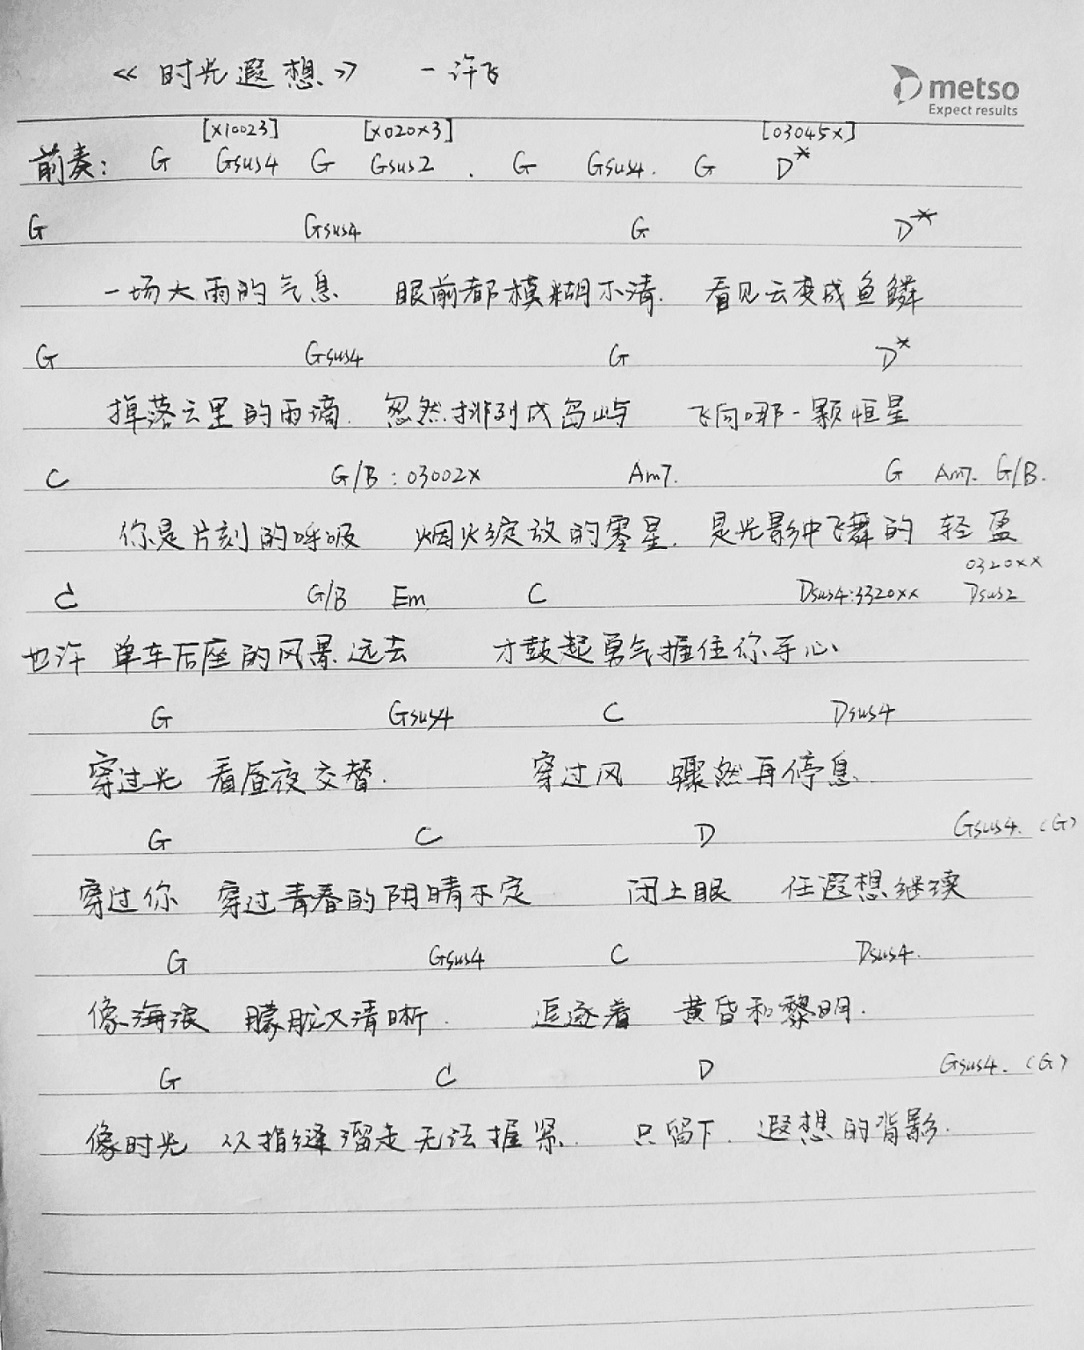 《时光遐想》 - 许飞
metso
Expect results
[x10023] [x020x3] [03045x]
前奏: G Gsus4 G Gsus2 . G Gsus4. G D*
G Gsus4 G D*
一场大雨的气息 眼前都模糊不清. 看见云变成鱼鳞
G Gsus4 G D*
掉落云里的雨滴. 忽然排列成岛屿 飞向哪一颗恒星
C G/B:03002x Am7. G Am7. G/B.
你是片刻的呼吸 烟火绽放的零星. 是光影中飞舞的 轻盈
0320xx
C G/B Em C Dsus4:3320xx Dsus2
也许 单车后座的风景远去 才鼓起勇气握住你手心
G Gsus4 C Dsus4
穿过光 看昼夜交替. 穿过风 骤然再停息.
G C D Gsus4. (G)
穿过你 穿过青春的阴晴不定 闭上眼 任遐想继续
G Gsus4 C Dsus4.
像海浪 朦胧又清晰. 追逐着 黄昏和黎明.
G C D Gsus4. (G)
像时光 从指缝溜走无法握紧. 只留下. 遐想的背影.